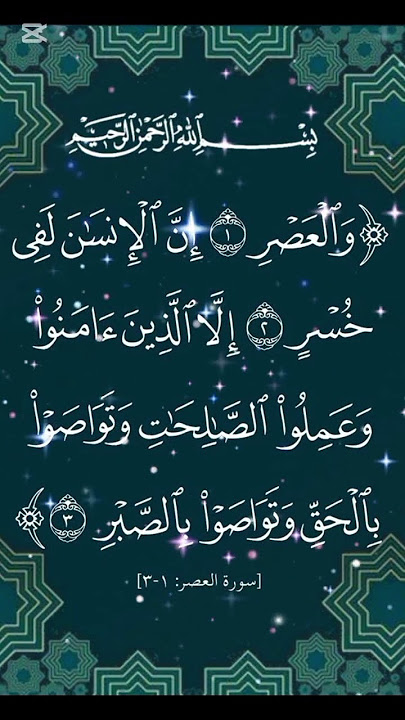 بِسْمِ اللَّهِ الرَّحْمَٰنِ الرَّحِيمِ
﴿وَٱلْعَصْرِ ١ إِنَّ ٱلْإِنسَٰنَ لَفِى
خُسْرٍ ٢ إِلَّا ٱلَّذِينَ ءَامَنُوا۟
وَعَمِلُوا۟ ٱلصَّٰلِحَٰتِ وَتَوَاصَوْا۟
بِٱلْحَقِّ وَتَوَاصَوْا۟ بِٱلصَّبْرِ ٣﴾
[سورة العصر: ١-٣]